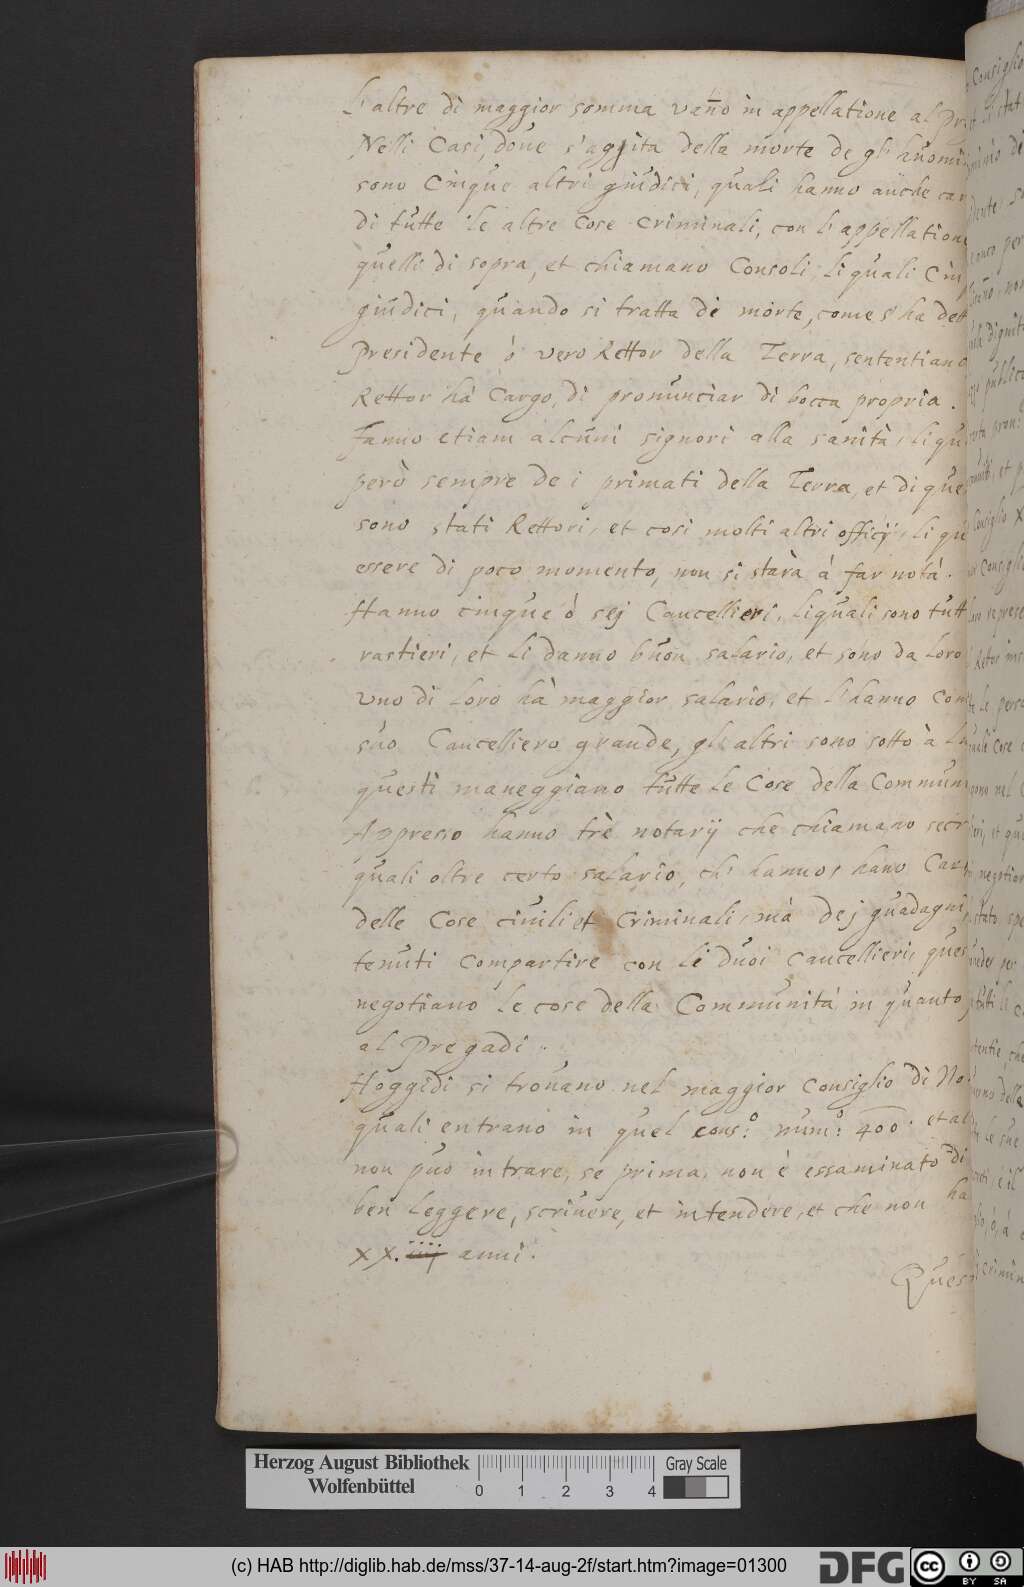 L'altre di maggior somma vañо in appellatione al Pr
Nelli Casi, doue s'aggita della morte de gl'huomi
sono Cinque altri giudici, quali hanno anche car
di tutte le altre Cose Criminali, con l'appellatione
quelli di sopra, et chiamano Consoli, li quali Cin
giudici, quando si tratta de morte, come s'ha dett
Presidente ò vero Rettor della Terra, sententiano
Rettor hà Cargo, di pronunciar di bocca propria.
fanno etiam alcuni signori alla sanità, li qu
però sempre de i primati della Terra, et di que
sono stati Rettori, et cosi molti altri officij, li qu
essere di poco momento, non si starà á far notá.
Hanno cinque ò sej Cancellieri, li quali sono tutt
rastieri, et li danno buon salario, et sono da loro
uno di loro hà maggior salario, et l'hanno Com
súo Cancelliero grande, gli altri sono sotto à lu
questi maneggiano tutte le Cose della Commun
Appresso hanno trè notarij che chiamano secr
quali oltre certo salario, ch' hanno, hano Car
delle Cose ciuili et Criminali, mà dej guadagni
tenuti compartire con li duoi Cancellieri, ques
negotiano le cose della Communitá in quanto
al Pregadi.
Hoggidi si trouano nel maggior Consiglio di No
quali entrano in quel cons:º num:º 400. et al
non puo intrare, se prima, non è essaminato di
ben leggere, scriuere, et intendere, et che non ha
XX. iiij anni.
Ques
Consiglio
li stat
dignita
publica
et p
Consiglio X
Consigli
loro represe
le perso
quali Cose
nel
et qu
negotia
stato spe
per
tutti le
che
della
le sue
è il
Crimin
Herzog August Bibliothek
Wolfenbüttel
0 1 2 3 4
Gray Scale
(c) HAB http://diglib.hab.de/mss/37-14-aug-2f/start.htm?image=01300
DFG
cc BY SA